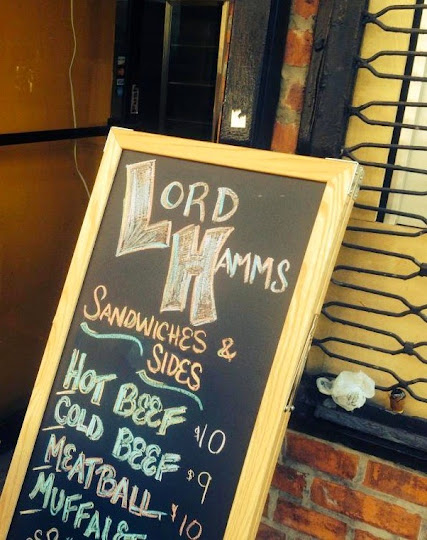 LORD
HAMMS
SANDWICHES &
SIDES
HOT BEEF $10
COLD BEEF $9
MEATBALL $10